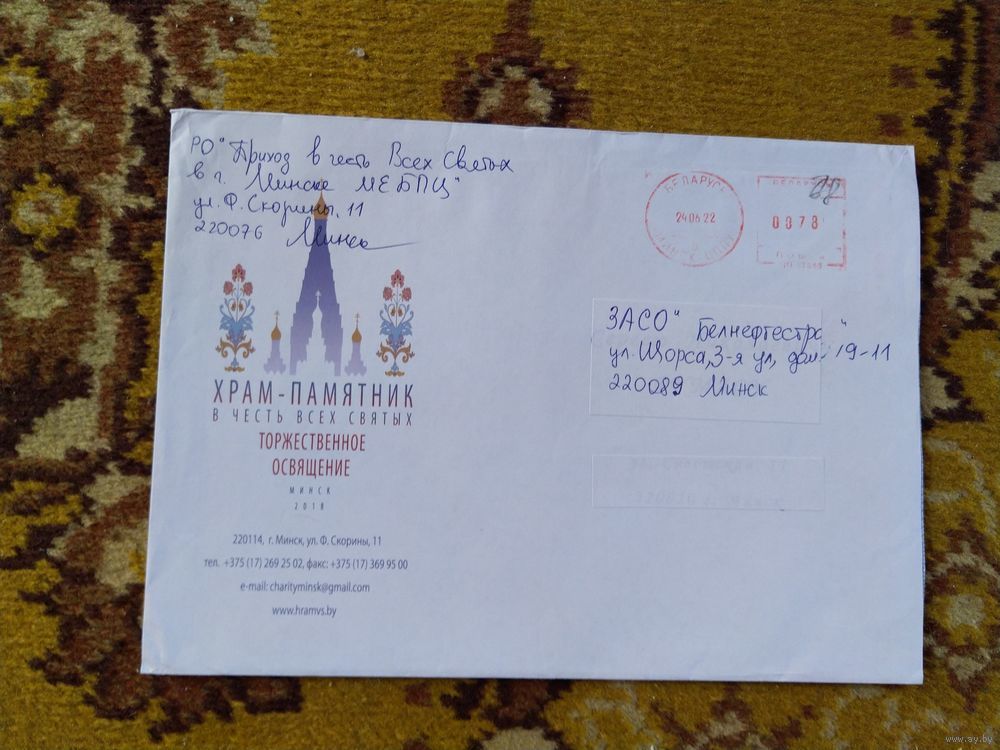 РО "Приход в честь Всех Святых
в г. Минске МЕБПЦ"
ул. Ф. Скорины, 11
220076 Минск
БЕЛАРУСЬ
24 06 22
МИНСК
0078
ЗАСО "Белнефтестра"
ул. Щорса, 3-я ул, дом 19-11
220089 Минск
ХРАМ-ПАМЯТНИК
В ЧЕСТЬ ВСЕХ СВЯТЫХ
ТОРЖЕСТВЕННОЕ
ОСВЯЩЕНИЕ
МИНСК
2018
220114, г. Минск, ул. Ф. Скорины, 11
тел. +375 (17) 269 25 02, факс: +375 (17) 369 95 00
e-mail: charityminsk@gmail.com
www.hramvs.by
www.ay.by